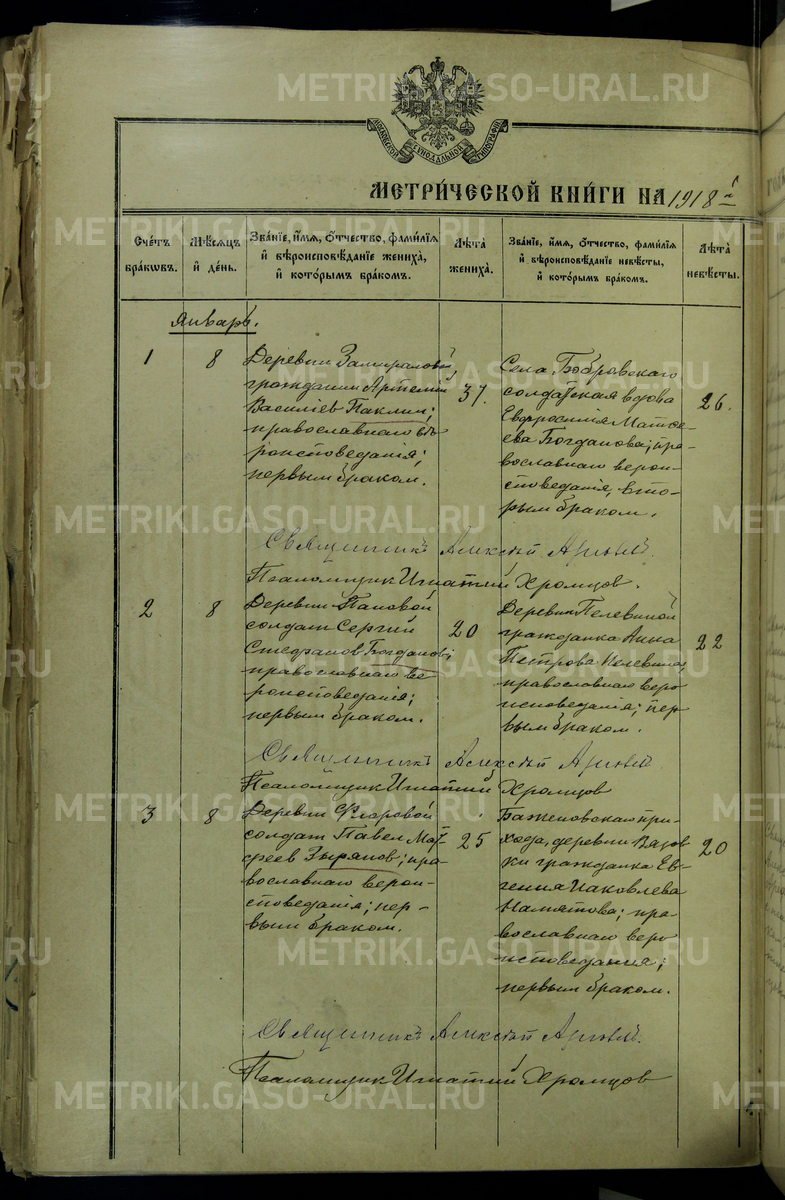 МОСКОВСКОЙ СѴНОДАЛЬНОЙ ТИПОГРАФІИ
МЕТРИ́ЧЕСКОЙ КНИ́ГИ НА 1918 г.
Сче́тъ бра́кѡвъ.
Мѣ́сяцъ и҆ де́нь.
Зва́нїе, и҆́мѧ, ѻ҆́тчество, фами́лїѧ и҆ вѣроисповѣ́данїе жениха̀, и҆ кото́рымъ бра́комъ.
Лѣ́та жениха̀.
Зва́нїе, и҆́мѧ, ѻ҆́тчество, фами́лїѧ и҆ вѣроисповѣ́данїе невѣ́сты, и҆ кото́рымъ бра́комъ.
Лѣ́та невѣ́сты.
Январь.
1
8
Деревни
гражданин Артемій
Василіев Паклин;
православнаго вѣ-
роисповеданія;
первым браком.
37.
Села Бобровскаго
солдатская вдова
Евфросинія Матѳе-
ева Богданова; пра-
вославнаго верои-
споведанія, вто-
рым браком.
26.
Священникъ Алексѣй
Псаломщик Игнатий Хромцов.
2
8
Деревни Пановой
солдат Сергий
Стефанов Богданов;
православнаго ве-
роисповеданія;
первым браком.
20
Деревни Пелевиной
гражданка Анна
Петрова Пелевина,
православнаго веро-
исповеданія; пер-
вым браком.
22
Священникъ Алексѣй
Псаломщик Игнатий Хромцов
3
8
Деревни
солдат Павел Мат-
феев Зырянов; пра-
вославнаго верои-
споведанія; пер-
вым браком.
25
при-
хода, деревни Вязов-
ки гражданка Ев-
гения Иаковлева
пра-
вославнаго веро-
исповедания;
первым браком.
20
Священникъ Алексѣй
Псаломщик Игнатий Хромцов
METRIKI.GASO-URAL.RU